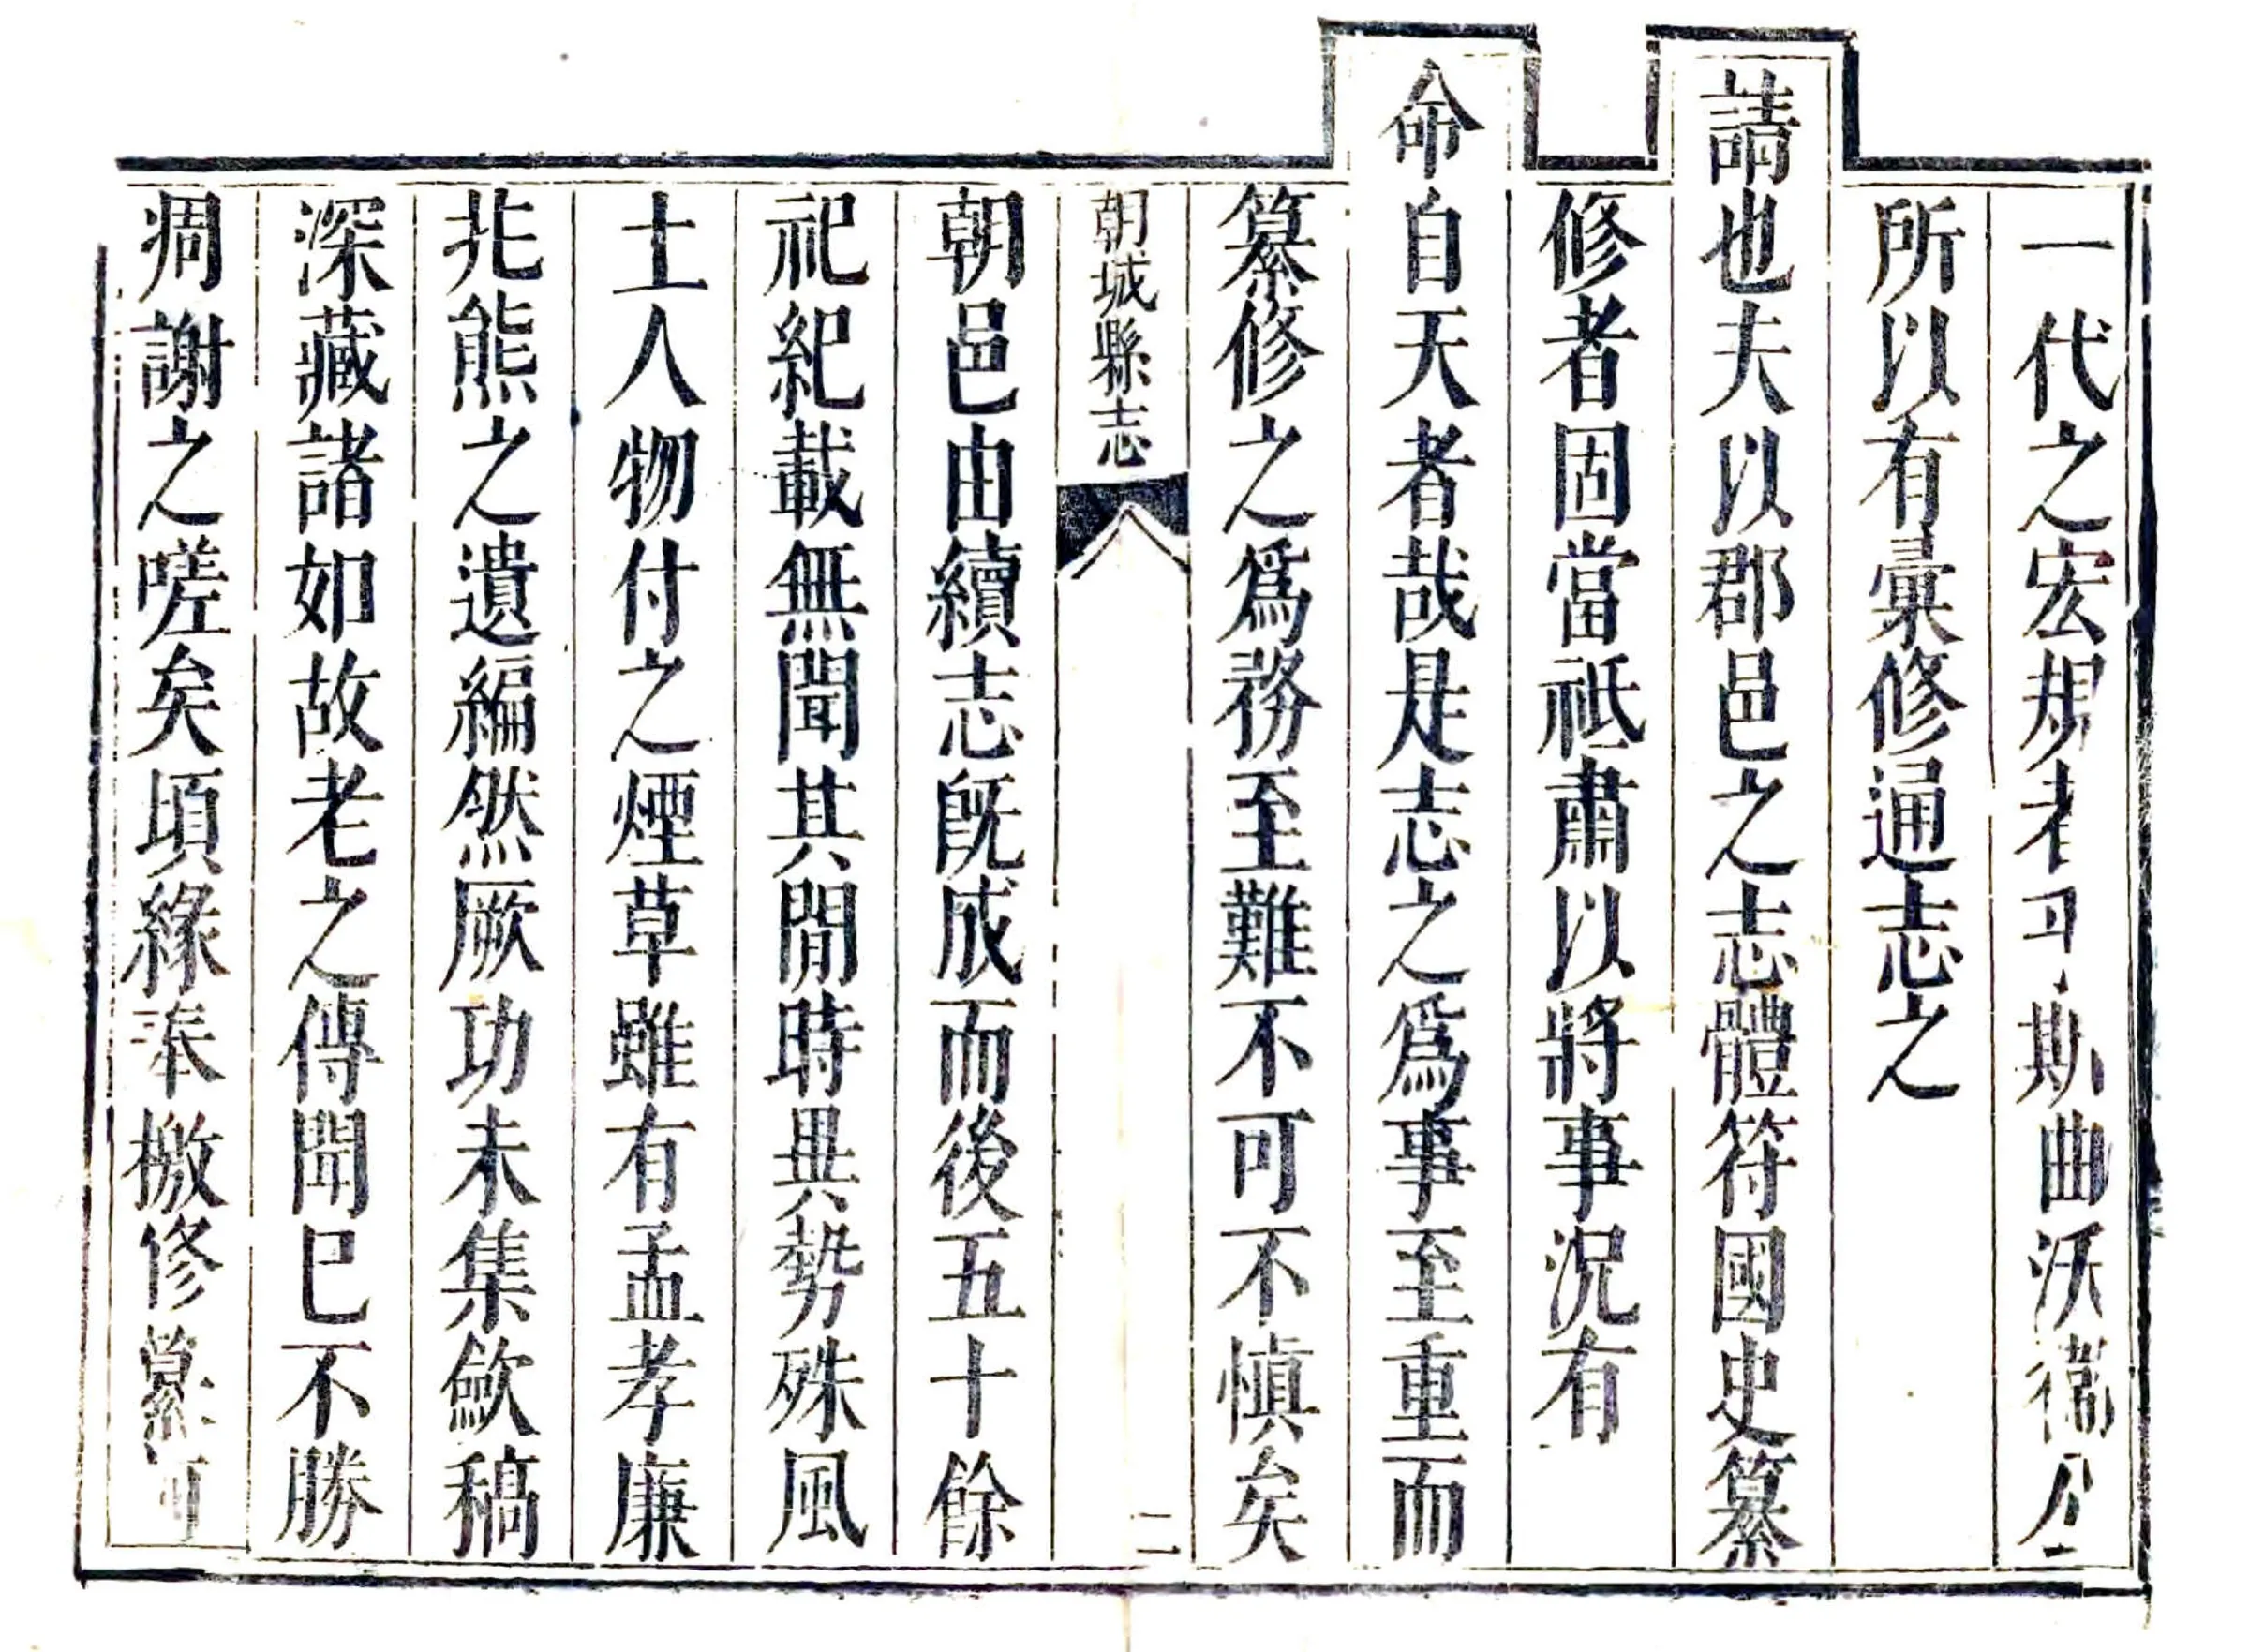 一代之宏規者斯曲沃衞公
所以有彙修通志之
請也夫以郡邑之志體符國史纂
修者固當祗肅以將事況有
命自天者哉是志之爲事至重而
纂修之爲務至難不可不慎矣
朝城縣志
二
朝邑由續志旣成而後五十餘
祀紀載無聞其閒時異勢殊風
土人物付之煙草雖有孟孝廉
兆熊之遺編然厥功未集歛稿
深藏諸如故老之傳聞巳不勝
凋謝之嗟矣頃緣奉檄修纂